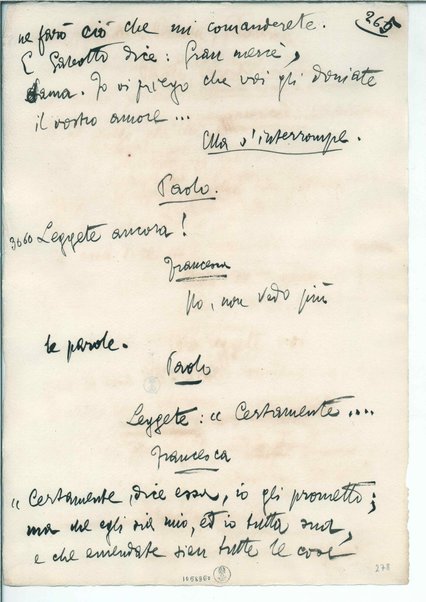 265
ne farò ciò che mi comanderete.
E Galeotto dice: Gran mercè,
dama. Io vi priego che voi gli doniate
il vostro amore ...
Ella s'interrompe.
Paolo.
3060 Leggete ancora!
Francesca
No, non vedo più
le parole.
Paolo
Leggete: « Certamente....
Francesca
« Certamente, dice essa, io gli prometto;
ma che egli sia mio, ed io tutta sua,
e che emendate sien tutte le cose
278